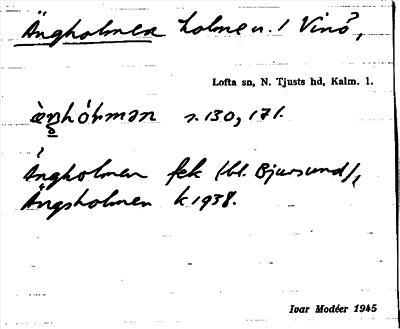 Ängholmen holme n. l Vinö,
Lofta sn, N. Tjusts hd, Kalm. l.
s. 130, 171.
Ängholmen fek (bl. Bjursund),
Ängsholmen k 1938.
Ivar Modéer 1945